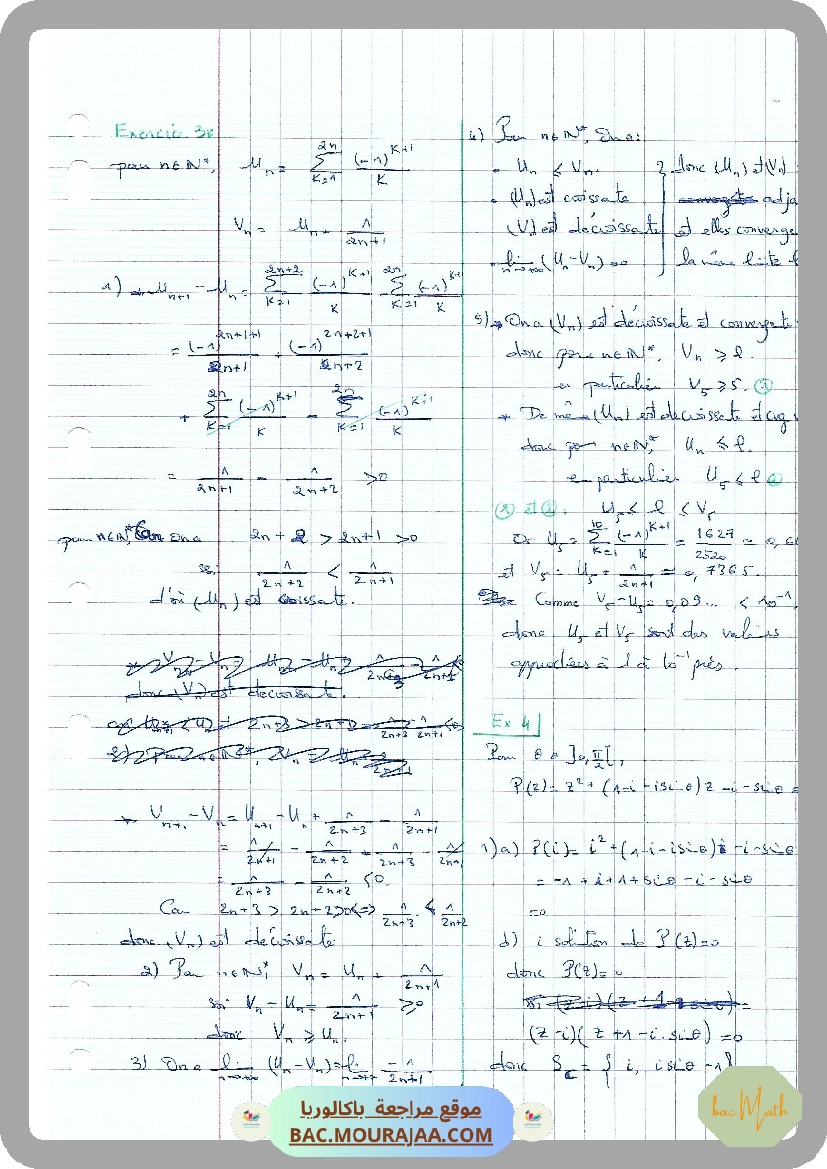 Exercice 3:
pour n∈ℕ*, Un = Σ_{K=1}^{2n} (-1)^{K+1}/K
Vn = Un + 1/(2n+1)
1) Un+1 - Un = Σ_{K=1}^{2n+2} (-1)^{K+1}/K - Σ_{K=1}^{2n} (-1)^{K+1}/K
= (-1)^{2n+1+1}/(2n+1) + (-1)^{2n+2+1}/(2n+2)
+ Σ_{K=1}^{2n} (-1)^{K+1}/K - Σ_{K=1}^{2n} (-1)^{K+1}/K
= 1/(2n+1) - 1/(2n+2) >0
pour n∈ℕ*, on a 2n+2 > 2n+1 >0
1/(2n+2) < 1/(2n+1)
d'où (Un) est croissante.
donc (Vn) est décroissante.
* Vn+1 - Vn = Un+1 - Un + 1/(2n+3) - 1/(2n+1)
= 1/(2n+1) - 1/(2n+2) + 1/(2n+3) - 1/(2n+1)
= 1/(2n+3) - 1/(2n+2) <0.
Car 2n+3 > 2n+2 >0 <=> 1/(2n+3) < 1/(2n+2)
donc (Vn) est décroissante
2) Pour n∈ℕ*, Vn = Un + 1/(2n+1)
Vn - Un = 1/(2n+1) ≥0
donc Vn ≥ Un.
3) On a lim_{n→+∞} (Un - Vn) = lim_{n→+∞} -1/(2n+1)
4) Pour n∈ℕ*, On a:
• Un ≤ Vn. } donc (Un) et (Vn)
• (Un) est croissante adja
(Vn) est décroissante et elles converge
• lim_{n→+∞} (Un-Vn)=0 la même limite l
5) * On a (Vn) est décroissante et convergente
donc pour n∈ℕ*, Vn ≥ l.
en particulier V5 ≥ 5. ①
* De même (Un) est decroissante et cvg
donc pour n∈ℕ*, Un ≤ l.
en particulier U5 ≤ l ②
① et ②: U5 ≤ l ≤ V5
Or U5 = Σ_{K=1}^{10} (-1)^{K+1}/K = 1627/2520 = 0,6
et V5 = U5 + 1/(2n+1) = 0,7365.
Comme V5-U5 = 0,09... < 10^{-1}
donc U5 et V5 sont des valeurs
approchées à l à 10^{-1} près.
Ex 4
Pour θ ∈ ]0,π/2[,
P(z) = z² + (1-i-isinθ)z -i-sinθ =
1) a) P(i) = i² + (1-i-isinθ)i -i-sinθ
= -1+i+1+sinθ-i-sinθ
=0
b) i solution de P(z)=0
donc P(z)=0
(z-i)(z+1-i.sinθ)=0
donc S_ℂ = { i, isinθ-1}
موقع مراجعة باكالوريا
BAC.MOURAJAA.COM
bac Math